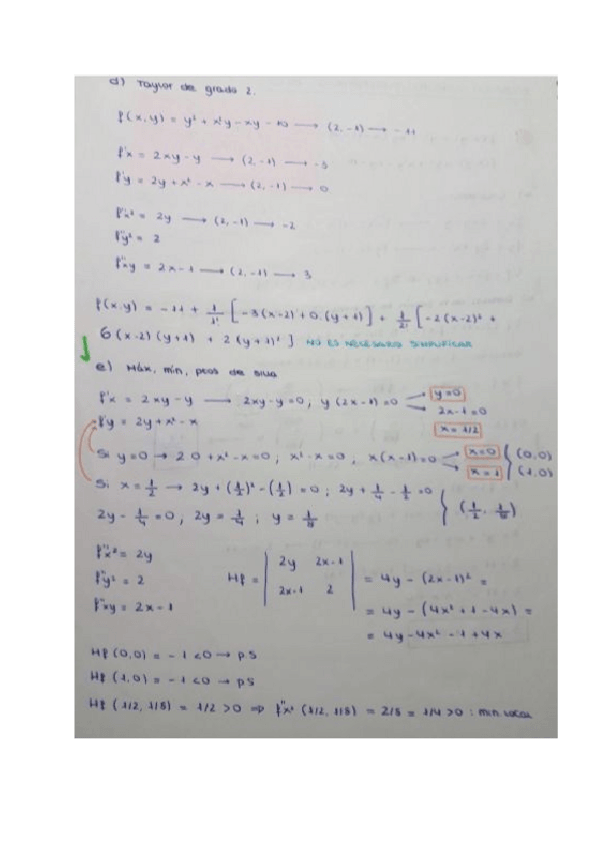 d) Taylor de grado 2.
f(x,y) = y² + x²y - xy - 10 → (2,-1) → -11
f'x = 2xy - y → (2,-1) → -3
f'y = 2y + x² - x → (2,-1) → 0
f''x² = 2y → (2,-1) → -2
f''y² = 2
f''xy = 2x - 1 → (2,-1) → 3
f(x,y) = -11 + 1/1! [-3(x-2) + 0.(y+1)] + 1/2! [-2(x-2)² +
6(x-2)(y+1) + 2(y+1)²] NO ES NECESARIO SIMPLIFICAR
e) Máx, mín, ptos de silla
f'x = 2xy - y → 2xy - y = 0; y(2x-1) = 0 → y=0
→ 2x-1=0
f'y = 2y + x² - x x = 1/2
Si y=0 → 2·0 + x² - x = 0; x² - x = 0; x(x-1) = 0 → x=0 { (0,0)
→ x=1 (1,0)
Si x = 1/2 → 2y + (1/2)² - (1/2) = 0; 2y + 1/4 - 1/2 = 0
2y - 1/4 = 0; 2y = 1/4; y = 1/8 } (1/2, 1/8)
f''x² = 2y
f''y² = 2
f''xy = 2x - 1
Hf = | 2y 2x-1 | = 4y - (2x-1)² =
| 2x-1 2 | = 4y - (4x² + 1 - 4x) =
= 4y - 4x² - 1 + 4x
Hf (0,0) = -1 < 0 → p.s
Hf (1,0) = -1 < 0 → p.s
Hf (1/2, 1/8) = 1/2 > 0 ⇒ f''x² (1/2, 1/8) = 2/8 = 1/4 > 0 : min local